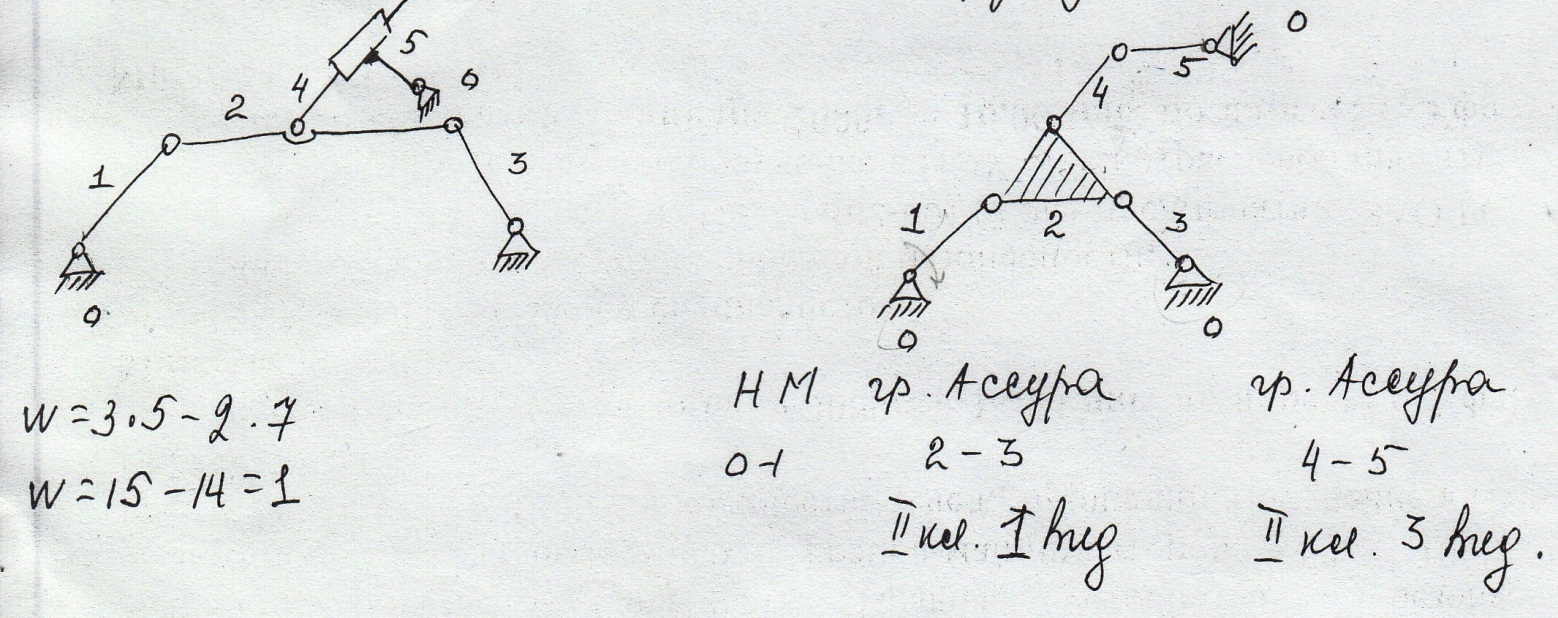 5
4
0
2
1
3
0
W = 3·5 - 2·7
W = 15 - 14 = 1
0
5
4
1
2
3
0
0
НМ гр. Ассура гр. Ассура
0-1 2-3 4-5
II кл. 1 вид II кл. 3 вид.